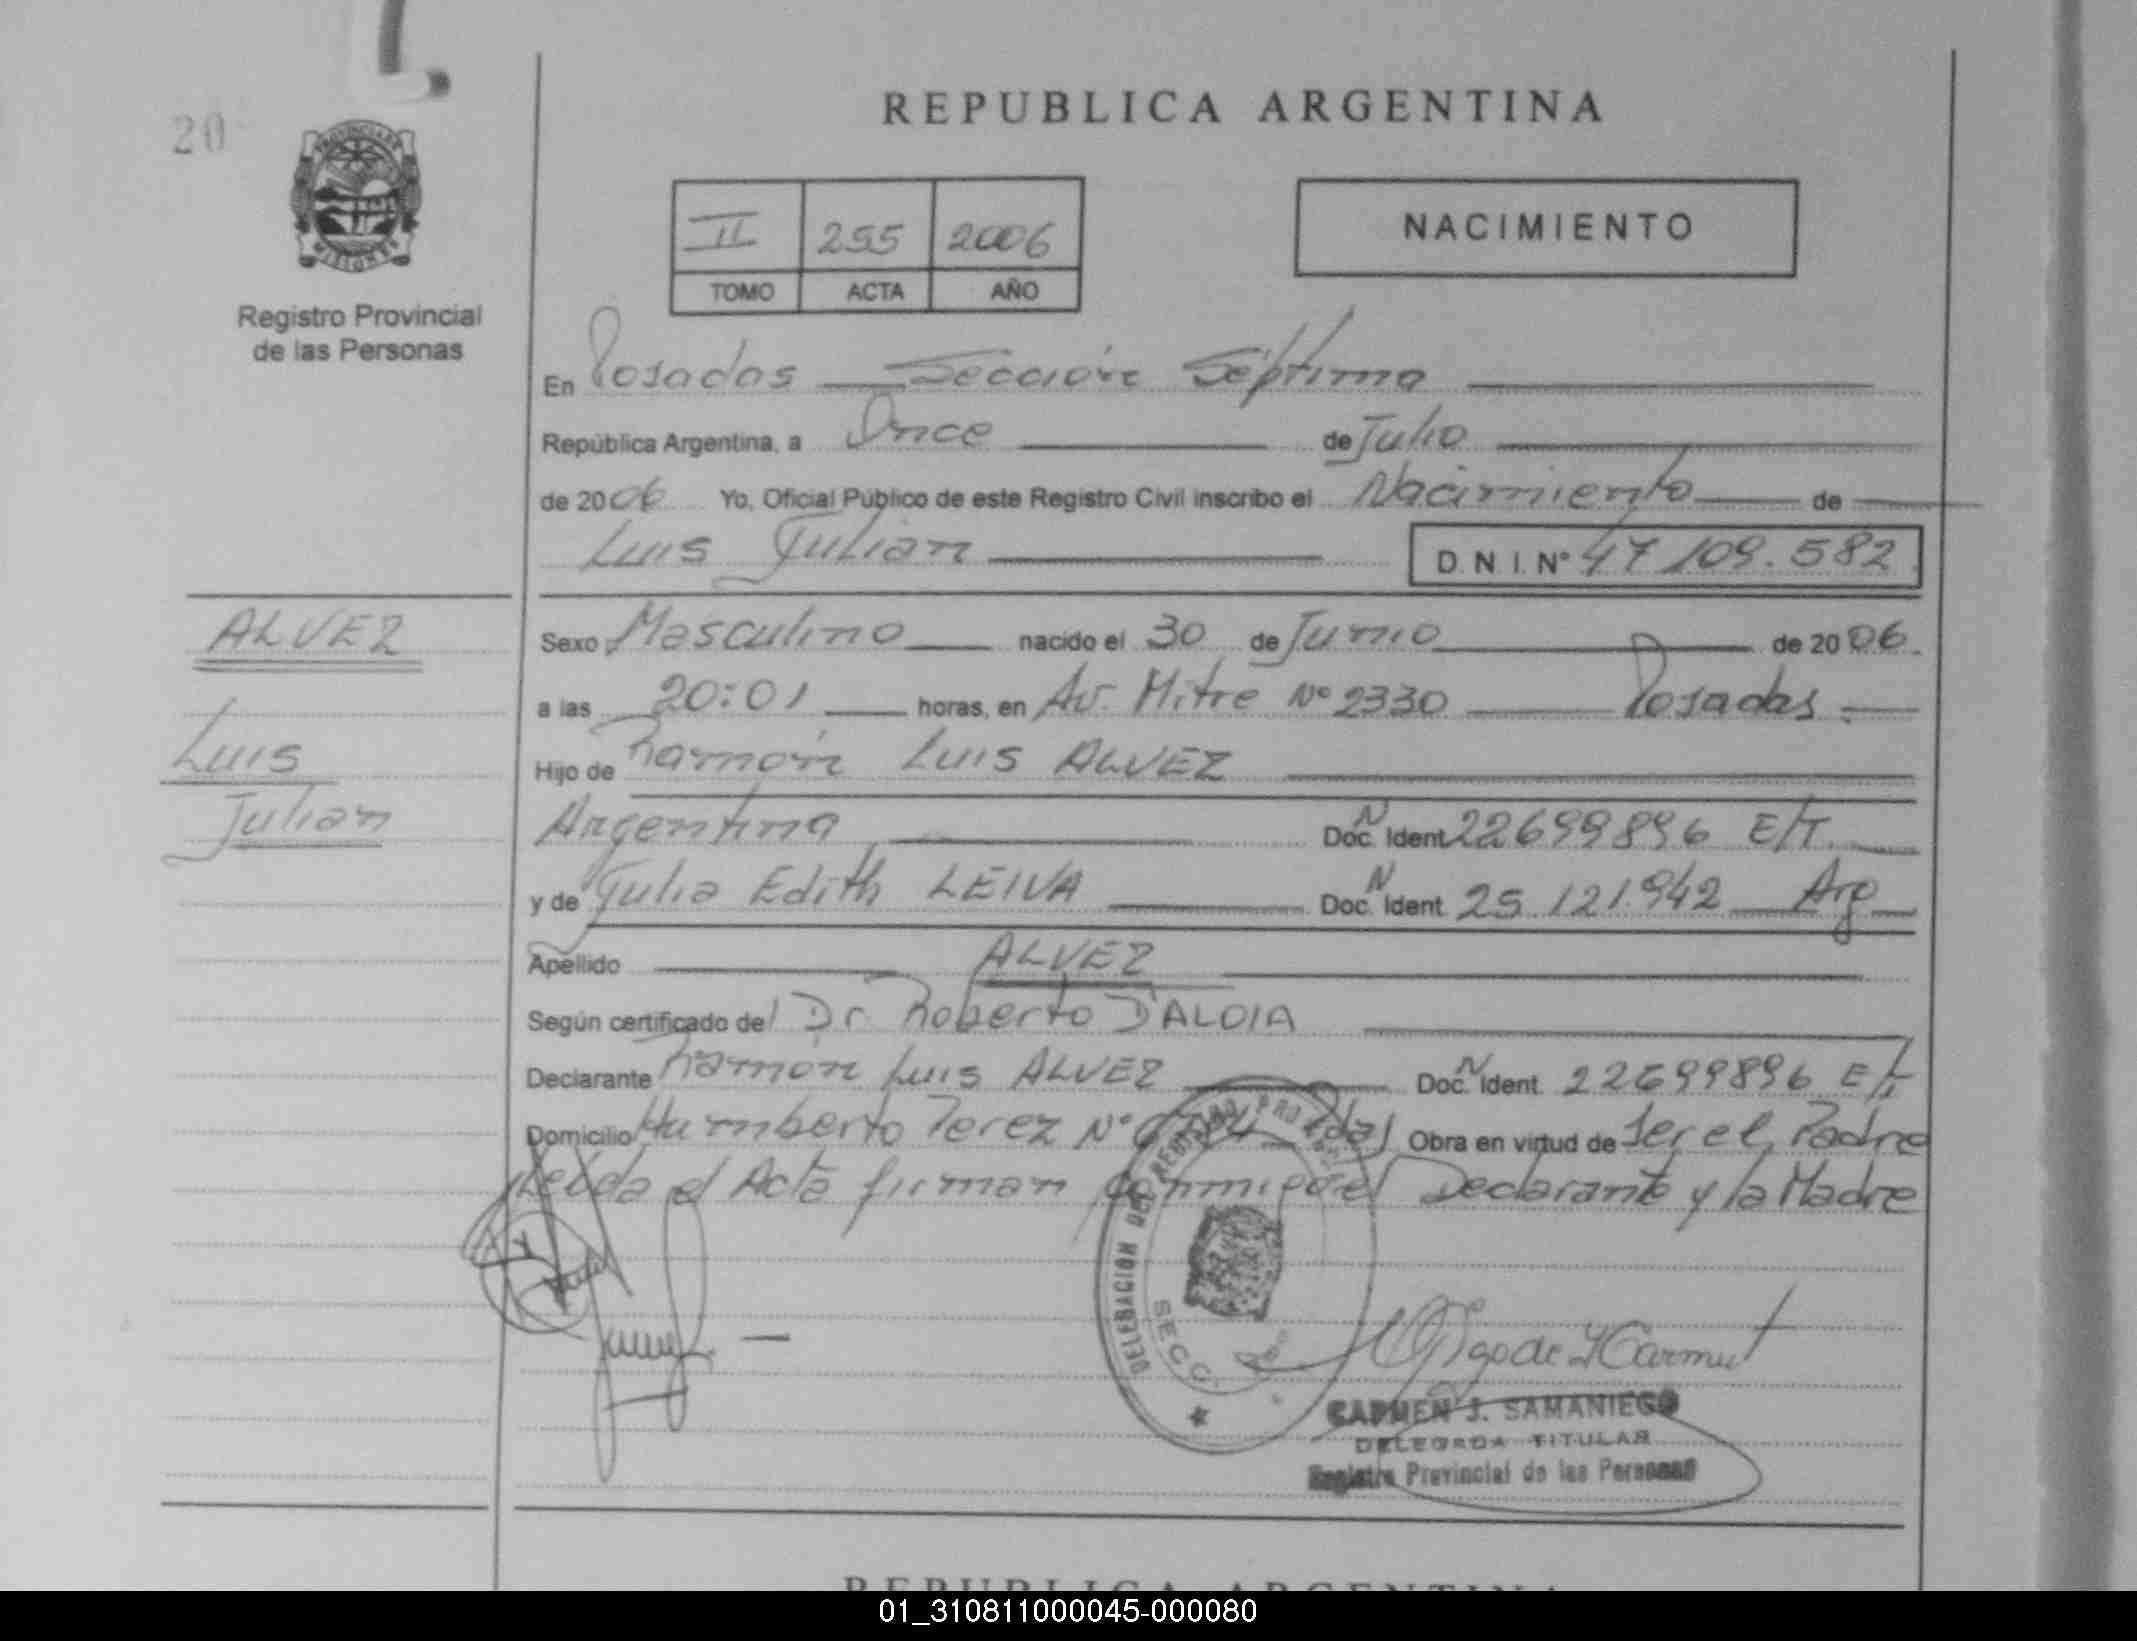 REPUBLICA ARGENTINA
20
PROVINCIA DE
MISIONES
Registro Provincial
de las Personas
II 255 2006
TOMO ACTA AÑO
NACIMIENTO
En Posadas Sección Séptima
República Argentina, a Once de Julio
de 2006 Yo, Oficial Público de este Registro Civil inscribo el Nacimiento de
Luis Julian D.N.I.Nº 47 109.582
ALVEZ
Luis
Julian
Sexo Masculino nacido el 30 de Junio de 2006.
a las 20:01 horas, en Av. Mitre Nº 2330 Posadas.
Hijo de Ramón Luis ALVEZ
Argentina Doc. N Ident 22699896 E/T.
y de Julia Edith LEIVA Doc. N Ident 25.121.942 Arg
Apellido ALVEZ
Según certificado del Dr Roberto D'ALOIA
Declarante Ramon Luis ALVEZ Doc. N Ident. 22699896 E/T
Domicilio Humberto Perez Nº Pdas Obra en virtud de Ser el Padre
Leída el Acta firman conmigo el Declarante y la Madre
DELEGACION DEL REGISTRO PROVINCIAL
SECC.
CARMEN J. SAMANIEGO
DELEGADA TITULAR
Registro Provincial de las Personas
REPUBLICA ARGENTINA
01_310811000045-000080